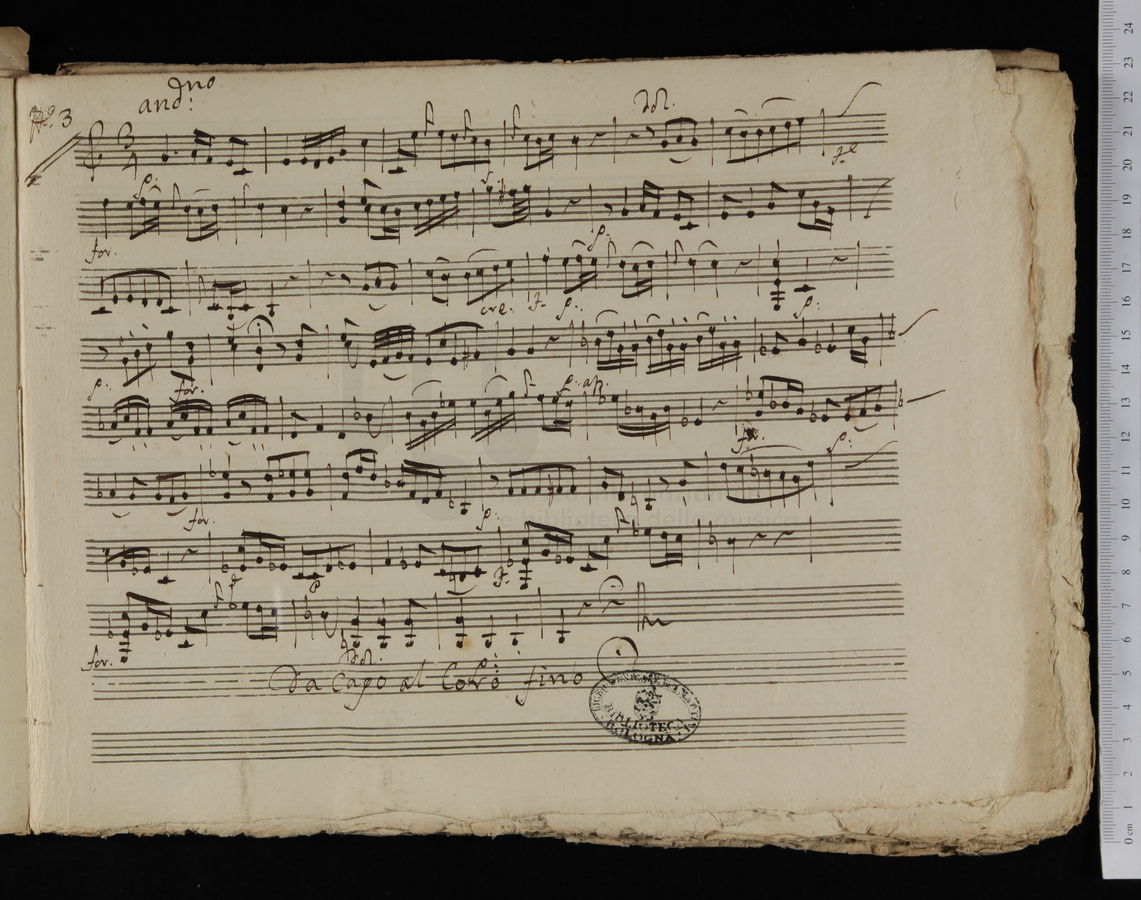 No. 3
andno:
dol.
p.
for.
p.
cre. f. p. p.
p. for. p.
for. p.
for. p.
f p f.
for. dol.
Da Capo al Coro fino
BIBLIOTECA
BOLOGNA
24
23
22
21
20
19
18
17
16
15
14
13
12
11
10
9
8
7
6
5
4
3
2
1
0 cm